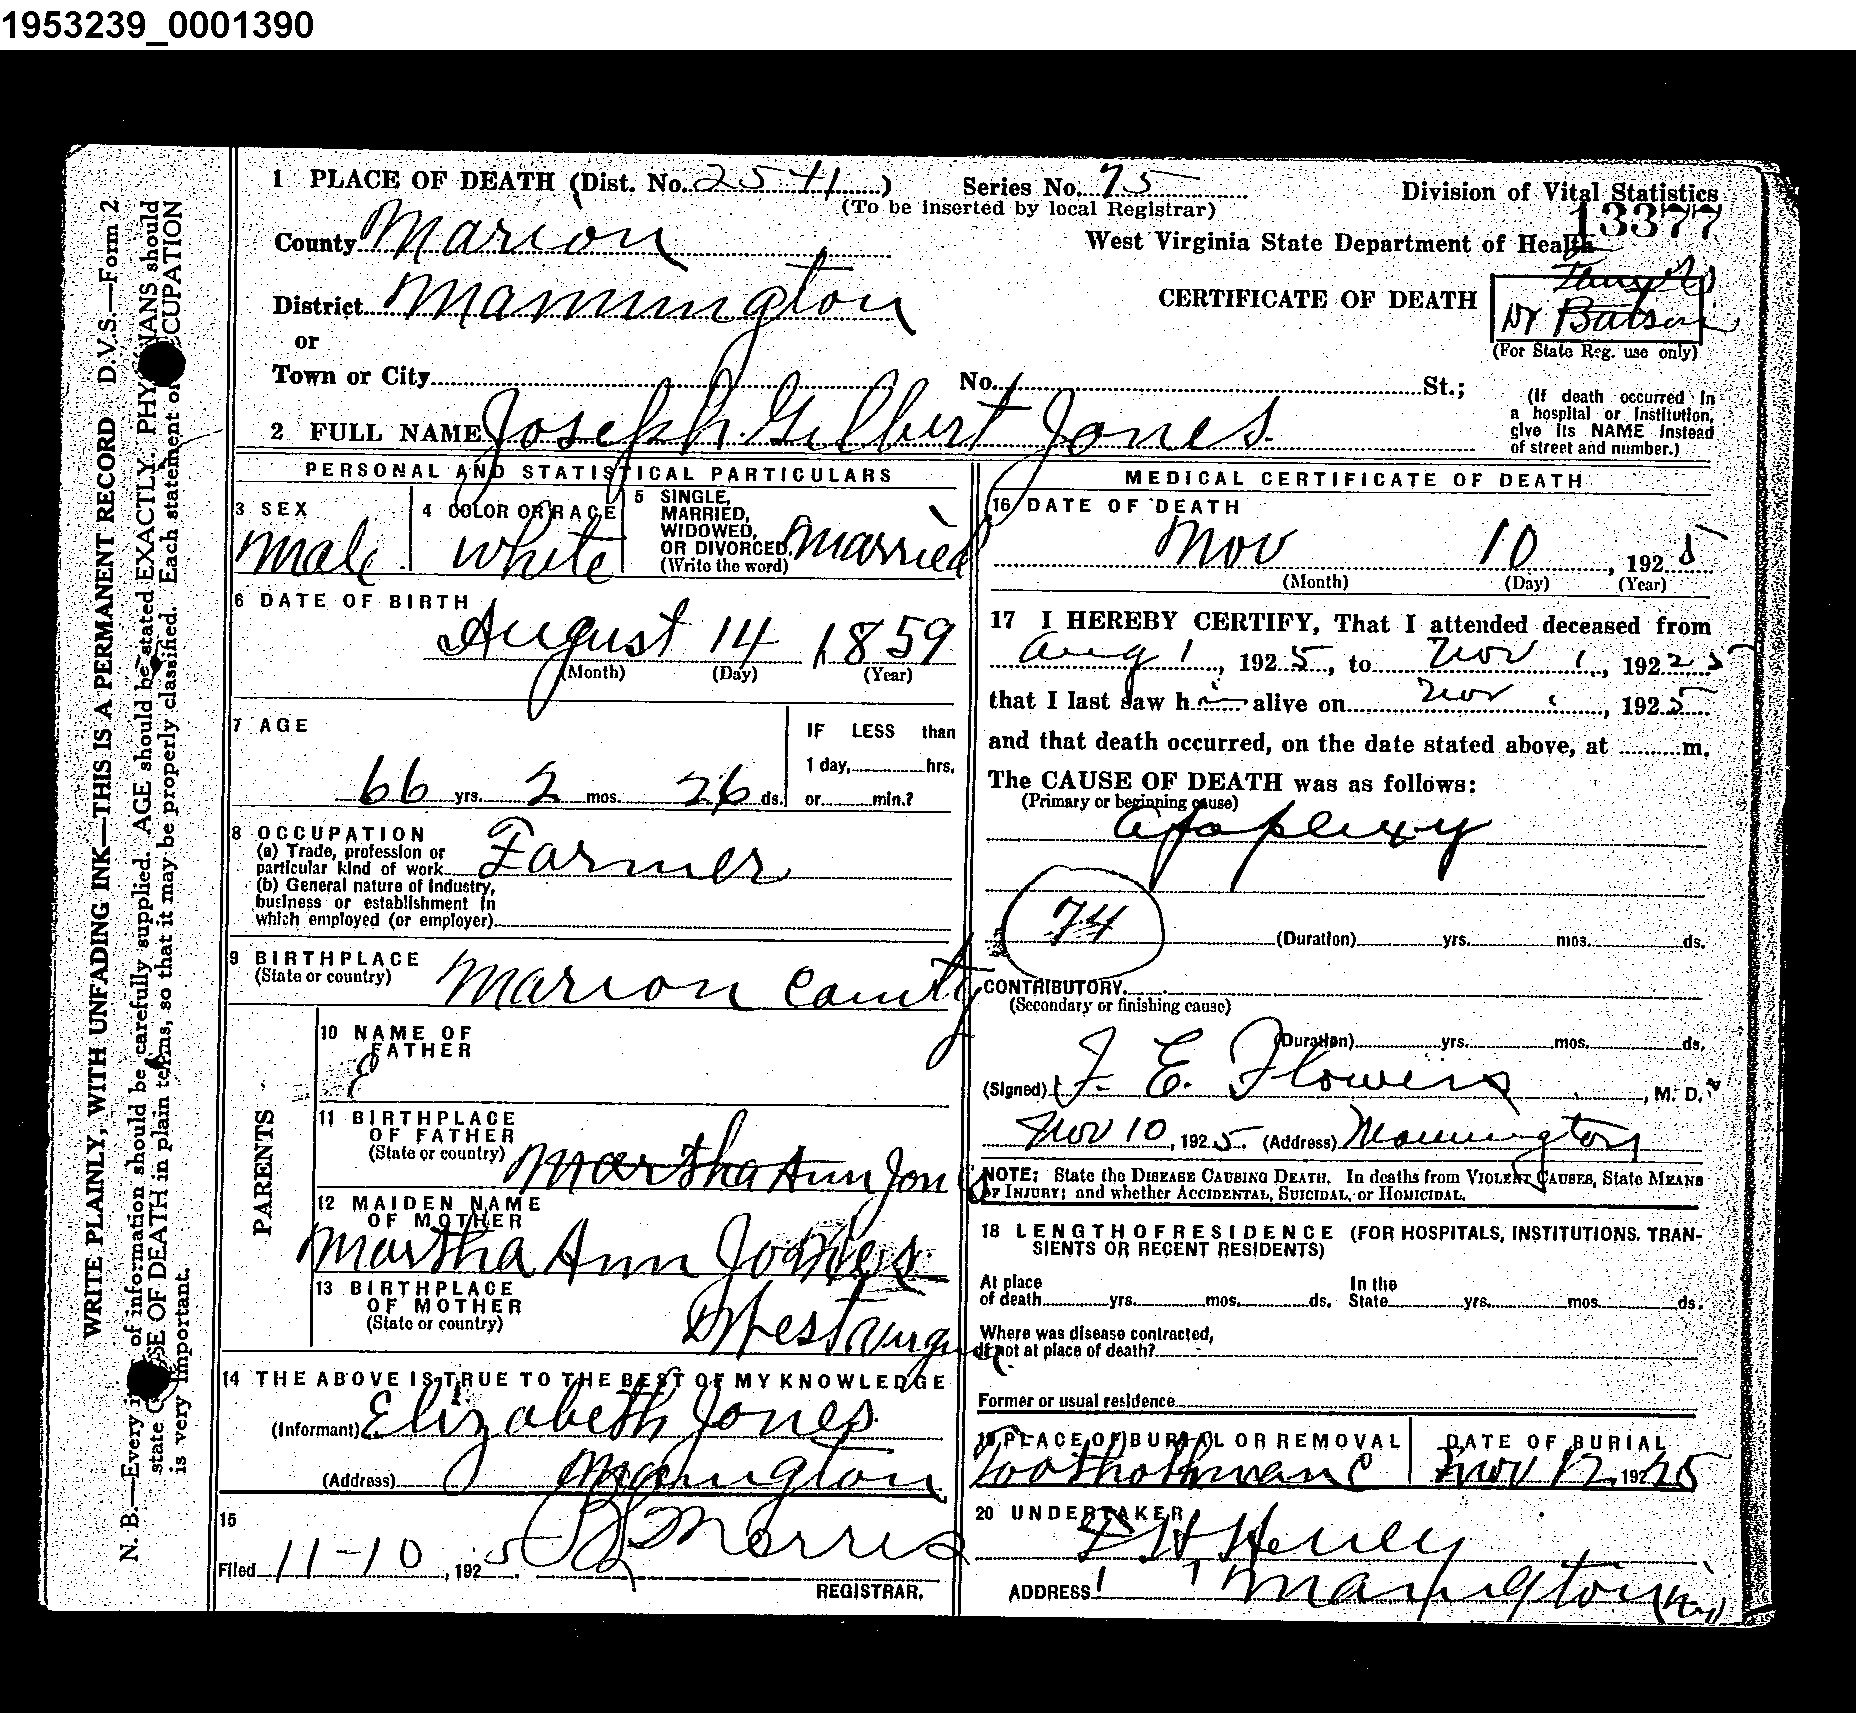 1953239_0001390
1 PLACE OF DEATH (Dist. No. 2541) Series No. 75 Division of Vital Statistics
(To be inserted by local Registrar) 13377
County Marion West Virginia State Department of Health
District Mannington CERTIFICATE OF DEATH
Dr Batson
or (For State Reg. use only)
Town or City No. St.;
(If death occurred in
a hospital or institution,
give its NAME instead
of street and number.)
2 FULL NAME Joseph Gilbert Jones
PERSONAL AND STATISTICAL PARTICULARS
3 SEX
male
4 COLOR OR RACE
White
5 SINGLE,
MARRIED,
WIDOWED,
OR DIVORCED.
(Write the word)
Married
6 DATE OF BIRTH
August 14 1859
(Month) (Day) (Year)
7 AGE
66 yrs. 2 mos. 26 ds.
IF LESS than
1 day, hrs.
or min.?
8 OCCUPATION
(a) Trade, profession or
particular kind of work Farmer
(b) General nature of industry,
business or establishment in
which employed (or employer)
9 BIRTHPLACE
(State or country) Marion County
PARENTS
10 NAME OF
FATHER
11 BIRTHPLACE
OF FATHER
(State or country) Martha Ann Jones
12 MAIDEN NAME
OF MOTHER
Martha Ann Jones
13 BIRTHPLACE
OF MOTHER
(State or country) West Virginia
14 THE ABOVE IS TRUE TO THE BEST OF MY KNOWLEDGE
(Informant) Elizabeth Jones
(Address) Manington
15
Filed 11-10, 1925. Morris
REGISTRAR.
MEDICAL CERTIFICATE OF DEATH
16 DATE OF DEATH
Nov 10, 1925
(Month) (Day) (Year)
17 I HEREBY CERTIFY, That I attended deceased from
Aug 1, 1925, to Nov 1, 19225
that I last saw him alive on Nov, 1925
and that death occurred, on the date stated above, at m.
The CAUSE OF DEATH was as follows:
(Primary or beginning cause)
Apoplexy
74
(Duration) yrs. mos. ds.
CONTRIBUTORY
(Secondary or finishing cause)
(Duration) yrs. mos. ds.
(Signed) F. E. Flowers, M. D.
Nov 10, 1925. (Address) Mannington
NOTE: State the DISEASE CAUSING DEATH. In deaths from VIOLENT CAUSES, State MEANS
OF INJURY; and whether ACCIDENTAL, SUICIDAL, or HOMICIDAL.
18 LENGTH OF RESIDENCE (FOR HOSPITALS, INSTITUTIONS, TRAN-
SIENTS OR RECENT RESIDENTS)
At place In the
of death yrs. mos. ds. State yrs. mos. ds.
Where was disease contracted,
if not at place of death?
Former or usual residence
19 PLACE OF BURIAL OR REMOVAL
DATE OF BURIAL
Nov 12, 1925
20 UNDERTAKER
ADDRESS Manington
WRITE PLAINLY, WITH UNFADING INK—THIS IS A PERMANENT RECORD D.V.S.—Form 2
N. B.—Every of information should be carefully supplied. AGE should be stated EXACTLY. PHY ANS should
state SE OF DEATH in plain terms, so that it may be properly classified. Each statement of CCUPATION
is very important.